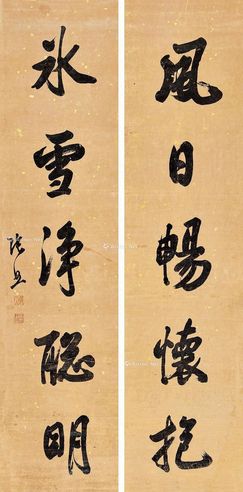 風日暢懷抱
冰雪淨聰明